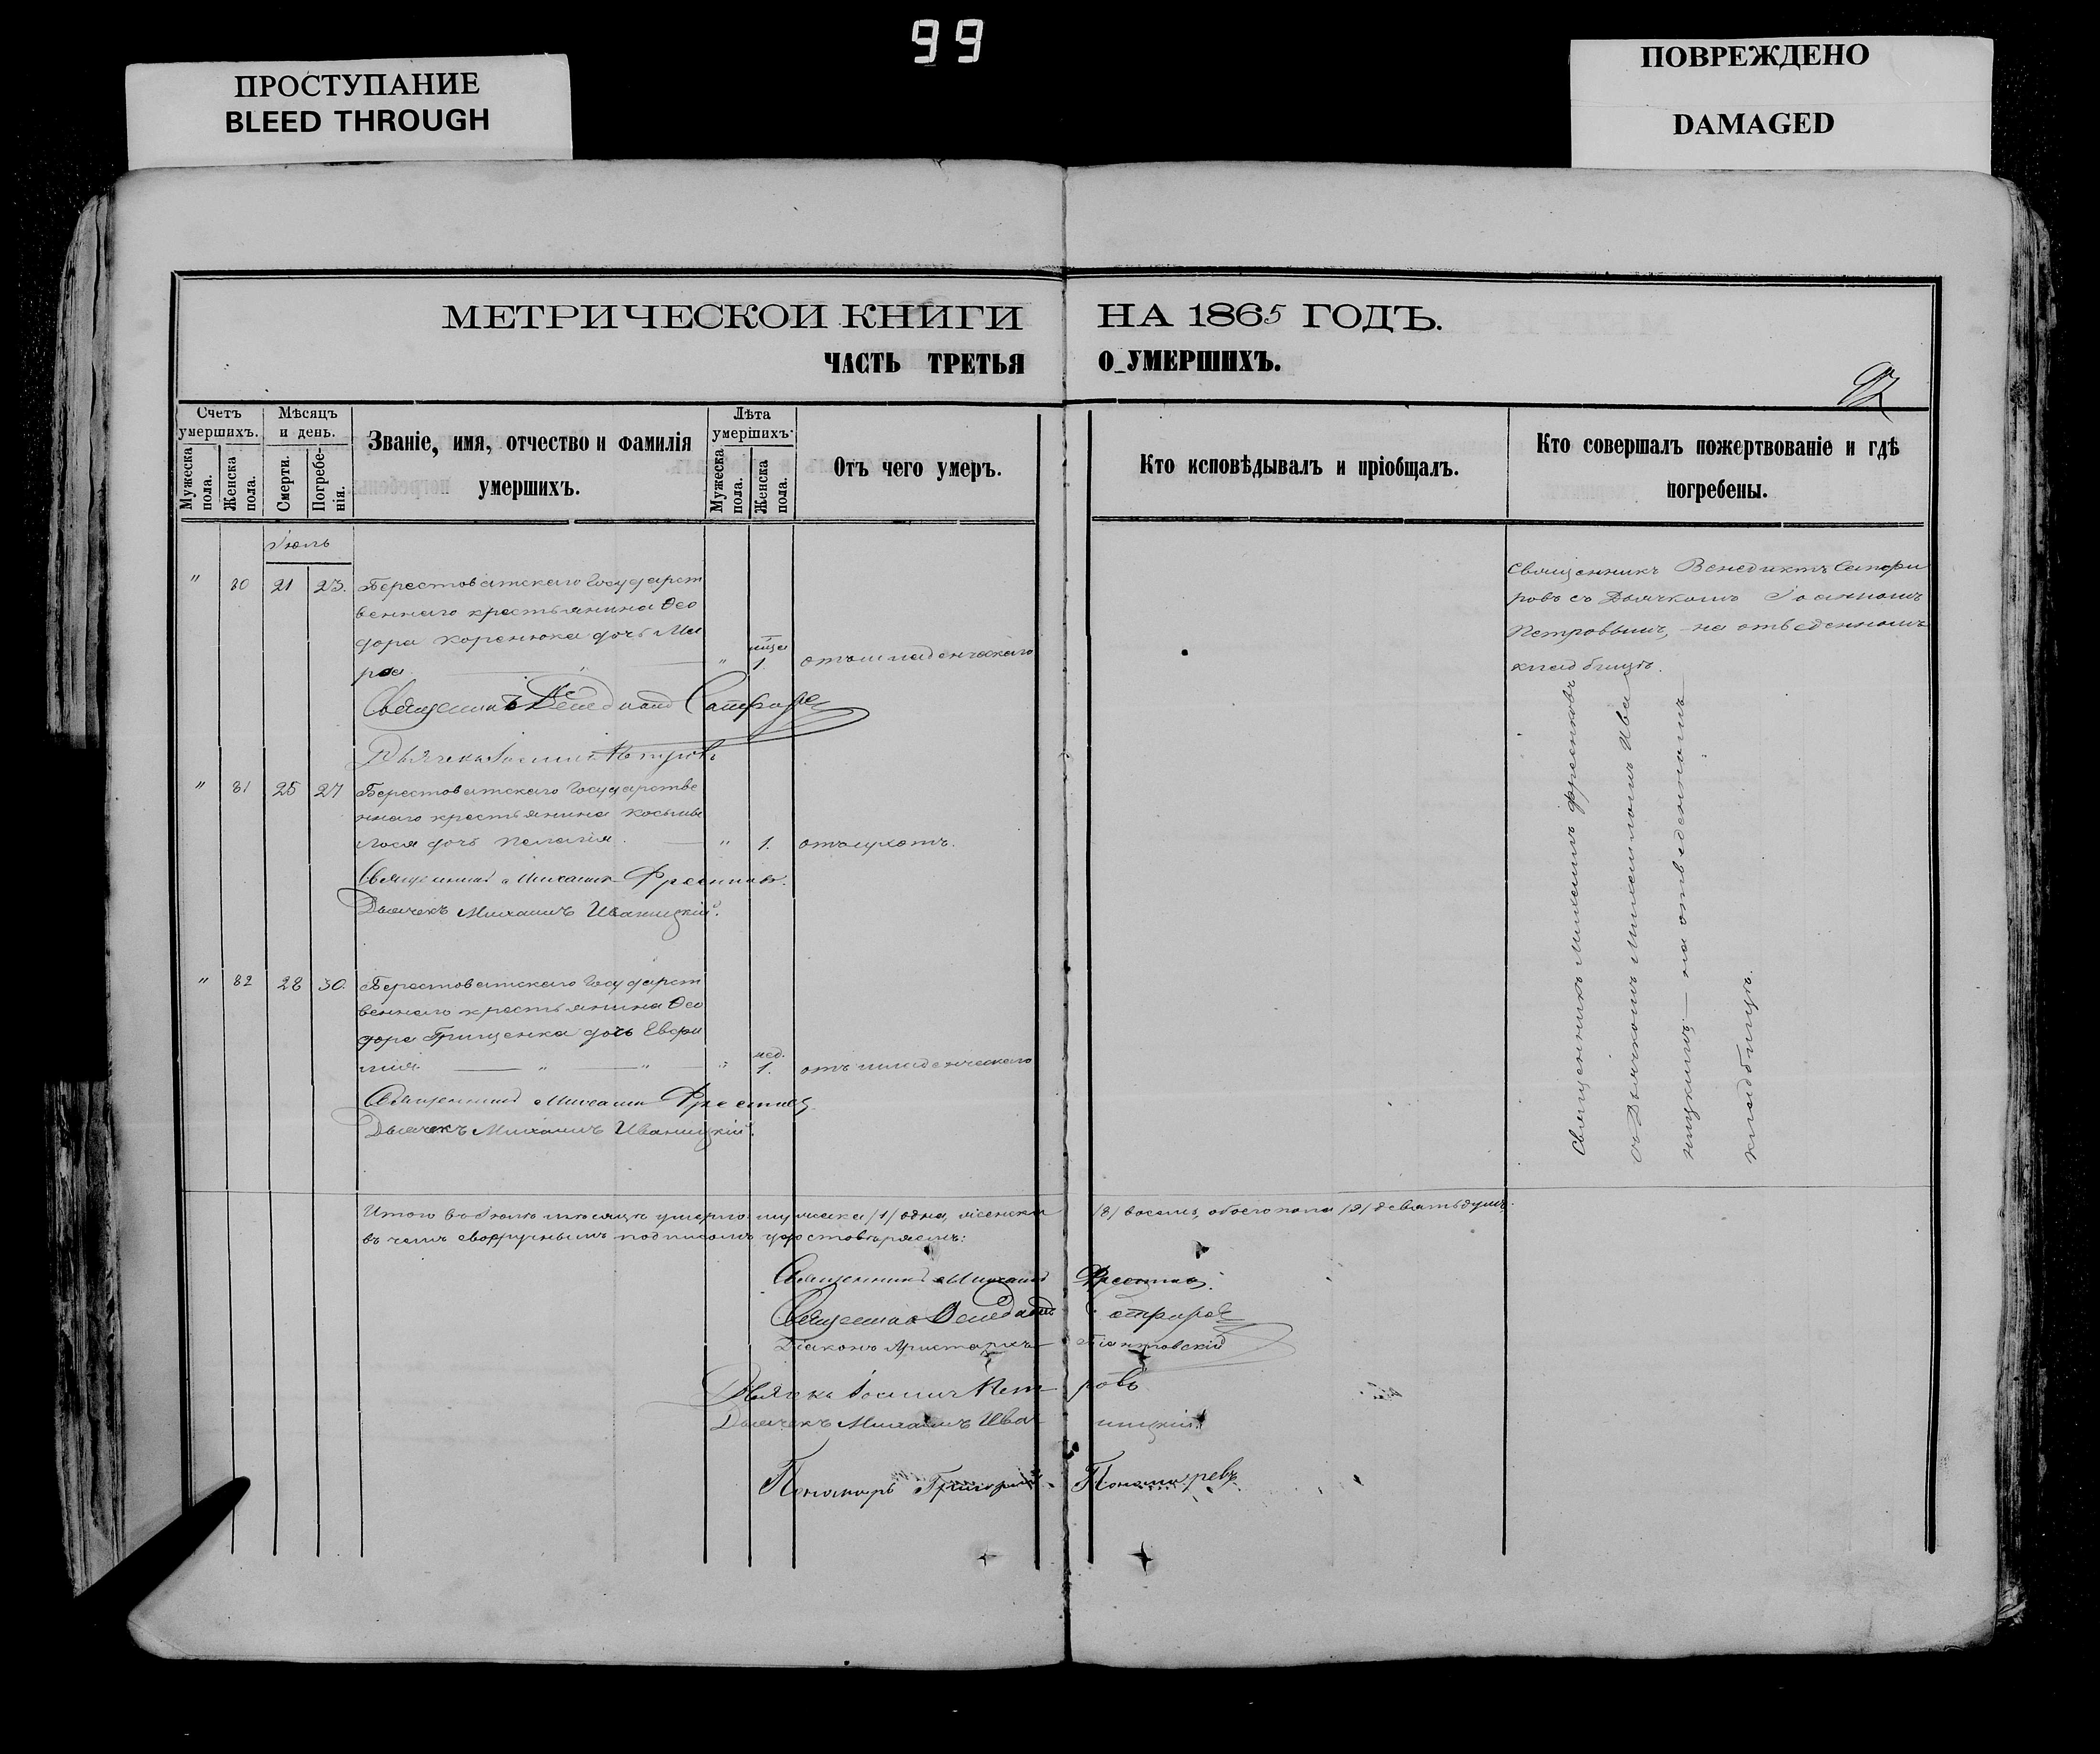 99
ПРОСТУПАНИЕ
BLEED THROUGH
ПОВРЕЖДЕНО
DAMAGED
МЕТРИЧЕСКОЙ КНИГИ НА 1865 ГОДЪ.
ЧАСТЬ ТРЕТЬЯ О УМЕРШИХЪ.
Счетъ умершихъ.
Мужеска пола.
Женска пола.
Мѣсяцъ и день.
Смерти.
Погребенія.
Званіе, имя, отчество и фамилія
умершихъ.
Лѣта умершихъ.
Мужеска пола.
Женска пола.
Отъ чего умеръ.
Кто исповѣдывалъ и пріобщалъ.
Кто совершалъ пожертвованіе и гдѣ
погребены.
Іюль
" 80 21 23. Берестоватскаго Государст
веннаго крестьянина Ѳео
дора Коренюка дочь Ма
ра " " 1. отъ младенческаго
Священникъ Венедиктъ
Дьячекъ Іоаннъ Петровъ
Священникъ Венедиктъ
ровъ съ Дьячкомъ Іоанномъ
Петровымъ, на отведенномъ
кладбищѣ.
" 81 25 27 Берестоватскаго Государстве
ннаго крестьянина Косьмы
Лося дочь Пелагія. " 1.
Священникъ Михаилъ
Дьячекъ Михаилъ Иваницкій.
" 82 28 30. Берестоватскаго Государст
веннаго крестьянина Ѳео
дора Грищенка дочь Евфи
мія " " " нед. 1. отъ младенческаго
Священникъ Михаилъ
Дьячекъ Михаилъ Иваницкій.
Священникъ Михаилъ
съ Дьячкомъ Михаиломъ Ива
ницкимъ — на отведенномъ
кладбищѣ.
Итого въ Іюлѣ мѣсяцѣ умерло мужеска /1/ одна, женска /8/ восемь, обоего пола /9/ девять душъ.
въ чемъ своеручнымъ подписомъ удостовѣряемъ:
Священникъ Михаилъ
Священникъ Венедиктъ
Діаконъ Аристархъ
Дьячекъ Іоаннъ Петровъ
Дьячекъ Михаилъ Иваницкій.
Пономарь Григорій Пономаревъ